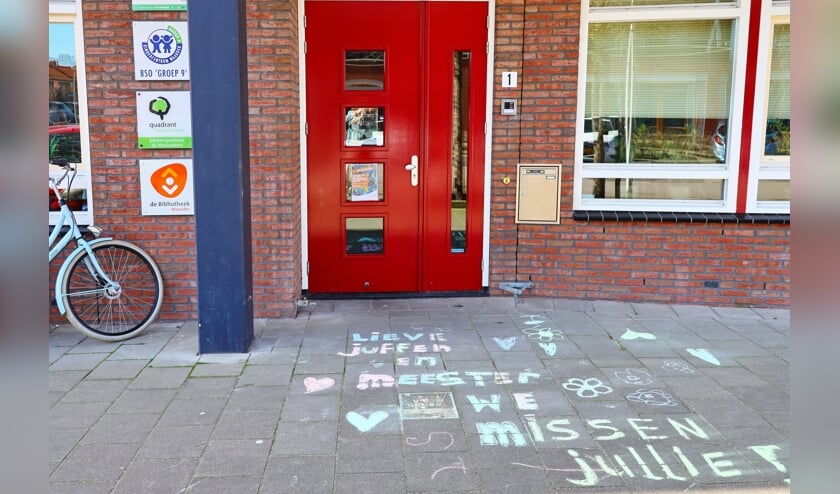 BSO 'GROEP 9'
quadrant
de Bibliotheek
1
LIEVE
JUFFEN
en
meester
WE
MISSEN
julliE!